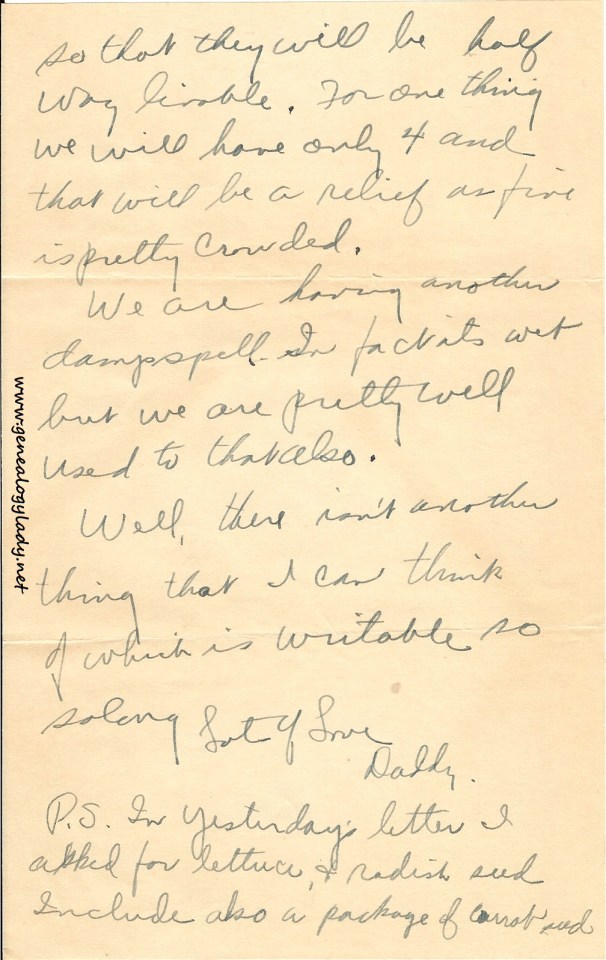 so that they will be half
way livable. For one thing
we will have only 4 and
that will be a relief as five
is pretty crowded.
We are having another
damp spell. In fact its wet
but we are pretty well
used to that also.
Well, there isn't another
thing that I can think
of which is writable so
solong Lot of Love
Daddy.
P.S. In Yesterday's letter I
asked for lettuce, & radish seed
Include also a package of carrot seed
www.genealogylady.net